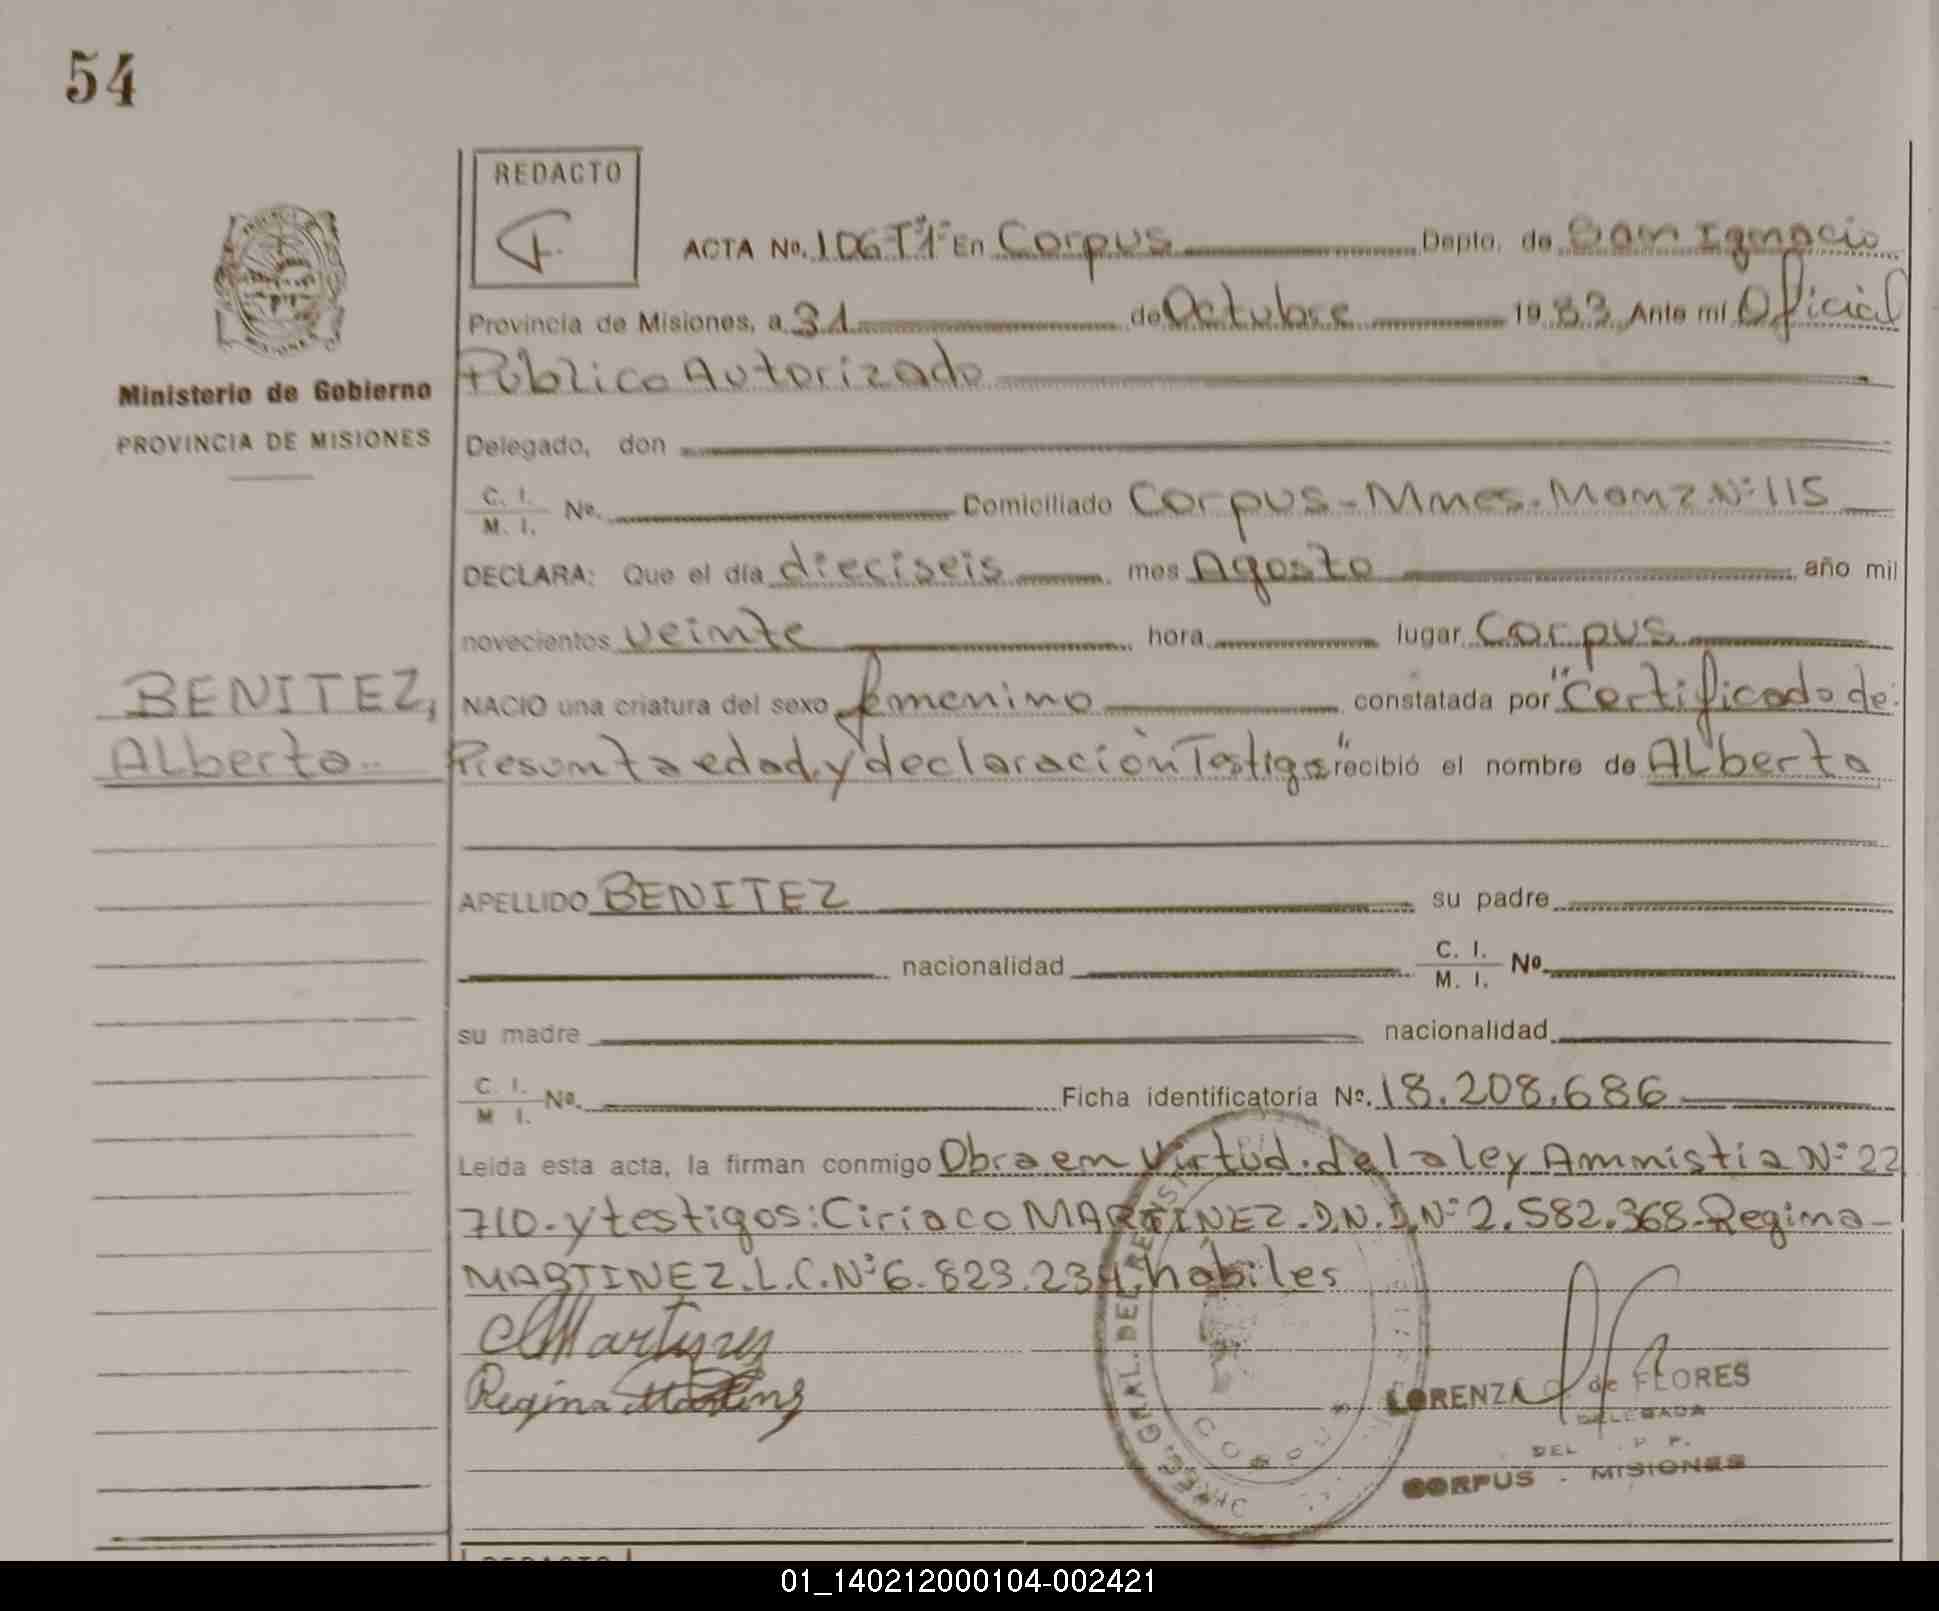 54
REDACTO
ACTA No. 106 Tº1º En Corpus Depto. de San Ignacio
Provincia de Misiones, a 31 de Octubre 1983 Ante mi Oficial
Público Autorizado
Ministerio de Gobierno
PROVINCIA DE MISIONES
Delegado, don
C. I. / M. I. No. Domiciliado Corpus-Mnes. Manz. Nº 115
DECLARA: Que el día dieciseis mes Agosto año mil
novecientos veinte hora lugar Corpus
BENITEZ,
Alberta
NACIO una criatura del sexo femenino constatada por "Certificado de
Presunta edad y declaración Testigos" recibió el nombre de Alberta
APELLIDO BENITEZ su padre
nacionalidad C. I. / M. I. No.
su madre nacionalidad
C. I. / M. I. No. Ficha identificatoria No. 18.208.686
Leida esta acta, la firman conmigo Obra en Virtud de la ley Ammistia Nº 22
710.- y testigos: Ciriaco MARTINEZ. D.N.I. Nº 2.582.368- Regina
MARTINEZ. L.C. Nº 6.823.234. hábiles
Regina
LORENZA de FLORES
DELEGADA
DEL P.
CORPUS - MISIONES
GRAL. DEL
CORPUS
REDACTO
01_140212000104-002421